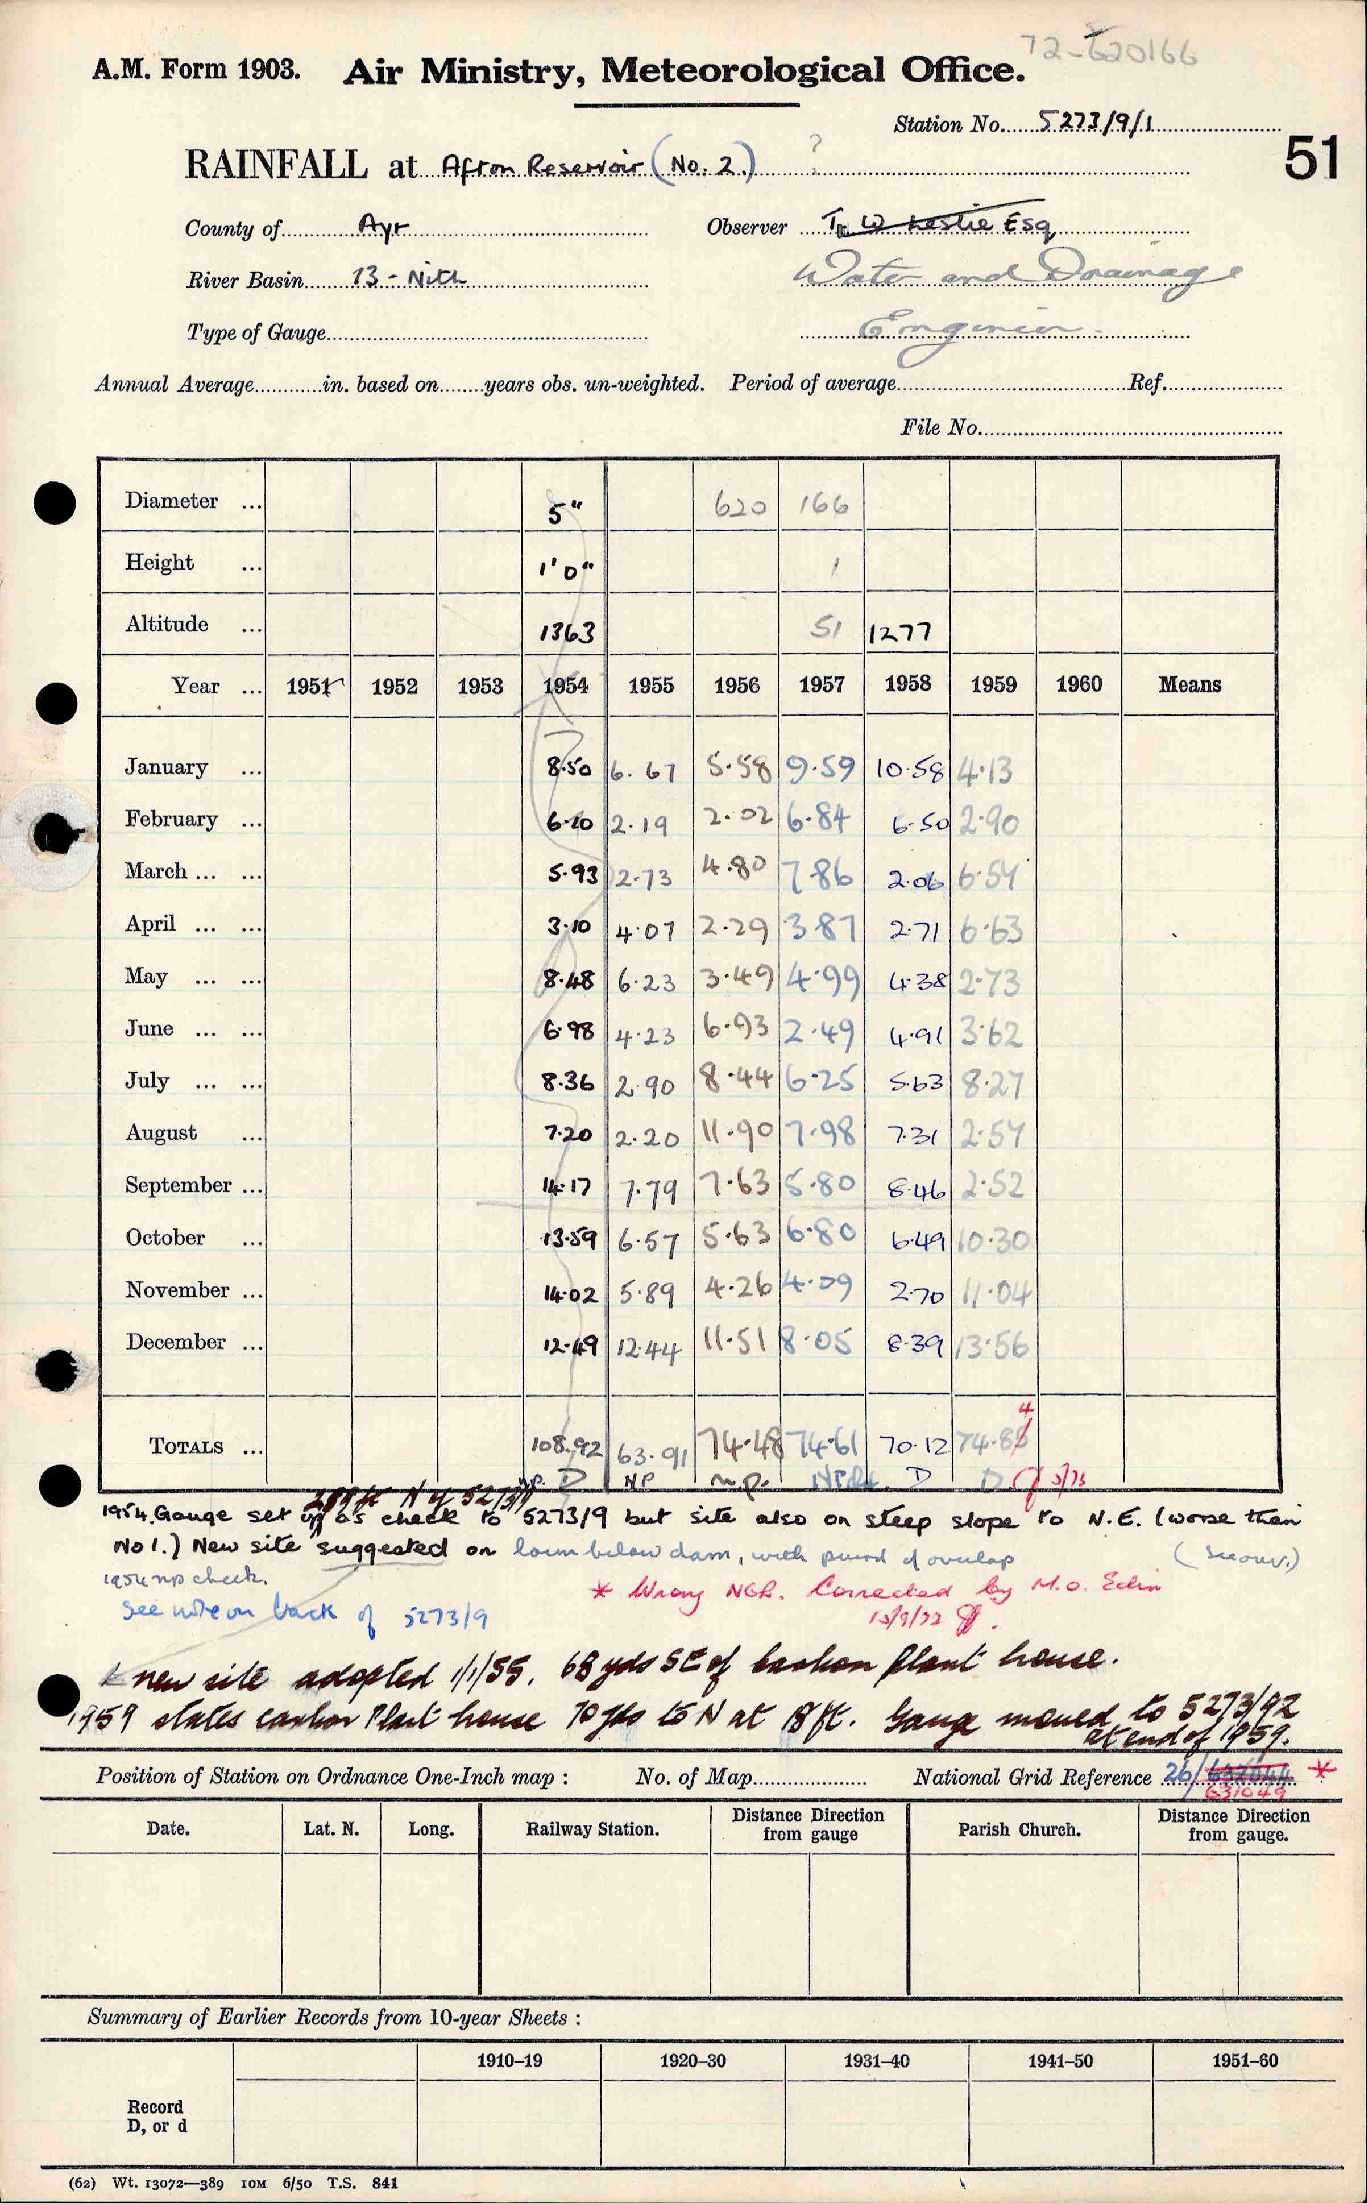 72-620166
A.M. Form 1903. Air Ministry, Meteorological Office.
Station No. 5273/9/1
51
RAINFALL at Afton Reservoir (No. 2.) ?
County of Ayr Observer The W Leslie Esq
River Basin 13 - Nith Water and Drainage
Type of Gauge Engineer.
Annual Average in. based on years obs. un-weighted. Period of average Ref.
File No.
Diameter ... 5" 620 166
Height ... 1'0" 1
Altitude ... 1363 51 1277
Year ... 1951 1952 1953 1954 1955 1956 1957 1958 1959 1960 Means
January ... 8.50 6.67 5.58 9.59 10.58 4.13
February ... 6.10 2.19 2.02 6.84 6.50 2.90
March ... ... 5.93 2.73 4.80 7.86 2.06 6.57
April ... ... 3.10 4.07 2.29 3.87 2.71 6.63
May ... ... 8.48 6.23 3.49 4.99 4.38 2.73
June ... ... 6.98 4.23 6.93 2.49 4.91 3.62
July ... ... 8.36 2.90 8.44 6.25 5.63 8.27
August ... 7.20 2.20 11.90 7.98 7.31 2.57
September ... 14.17 7.79 7.63 5.80 8.46 2.52
October ... 13.59 6.57 5.63 6.80 6.49 10.30
November ... 14.02 5.89 4.26 4.09 2.70 11.04
December ... 12.49 12.44 11.51 8.05 8.39 13.56
4
TOTALS ... 108.92 63.91 74.48 74.61 70.12 74.88
n.p. D NP n.p. D D 5/73
200 ft N of 5273/9
1954. Gauge set up as check to 5273/9 but site also on steep slope to N.E. (worse than
No 1.) New site suggested on lawn below dam, with period of overlap (see over.)
1954 np check.
See note on back of 5273/9
* Wrong NGR. Corrected by M.O. Edin
13/9/73
new site adopted 1/1/55. 68 yds SE of carbon plant house.
1959 states carbon Plant house 70 yds to N at 18 ft. Gauge moved to 5273/92
at end of 1959.
Position of Station on Ordnance One-Inch map : No. of Map National Grid Reference 26/632044 *
631049
Date. Lat. N. Long. Railway Station. Distance Direction from gauge Parish Church. Distance Direction from gauge.
Summary of Earlier Records from 10-year Sheets :
1910–19 1920–30 1931–40 1941–50 1951–60
Record
D, or d
(62) Wt. 13072—389 10M 6/50 T.S. 841